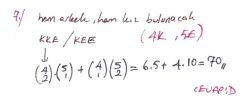 7-) hem erkek, hem kız bulunacak
KKE / KEE (4K, 5E)
(4 2).(5 1) + (4 1)(5 2) = 6.5 + 4.10 = 70//
CEVAP: D